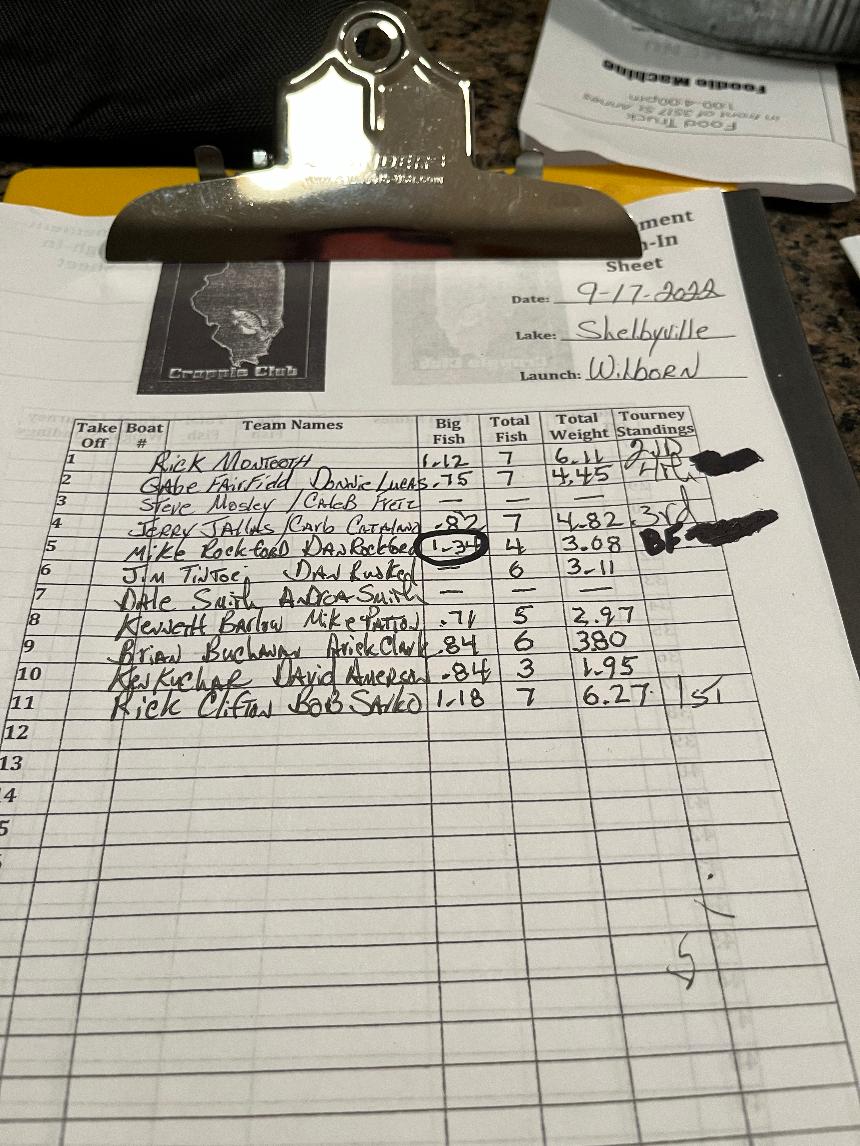 MENU
Foodie Machine
1:00-4:00pm
in front of 3517 St. Annes
Food Truck
ment
n-In
Sheet
Date: 9-17-2022
Lake: Shelbyville
Launch: Wilborn
Crappie Club
Take Off Boat # Team Names Big Fish Total Fish Total Weight Tourney Standings
1 Rick Monteoth 1.12 7 6.11 2ND
2 Gabe Fairfield Donnie Lucas .75 7 4.45 4th
3 Steve Mosley / Caleb — — —
4 Jerry / Carb Catalano .82 7 4.82 3rd
5 Mike Rockford Dan Rockford 1.34 4 3.08 BF
6 Jim Dan — 6 3.11
7 Dale Smith Andrea Smith — — —
8 Kenneth Barlow Mike Patton .71 5 2.97
9 Brian Buchanan Arick Clark .84 6 380
10 Ken Kuchar David Amerson .84 3 1.95
11 Rick Clifton Bob Sarko 1.18 7 6.27 1st
12
13
4
5
5